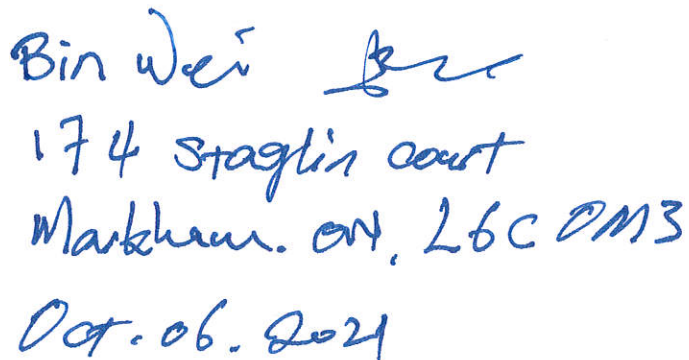 Bin Wei
174 Staglin court
Markham. ON. L6C 0M3
Oct. 06. 2021